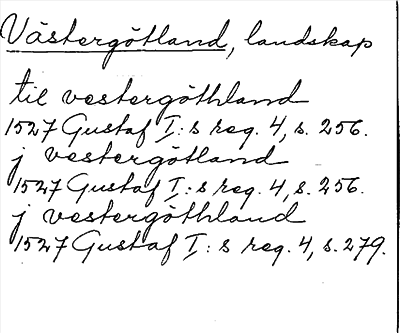 Västergötland, landskap
til vestergöthland
1527 Gustaf I:s reg. 4, s. 256.
j vestergötland
1527 Gustaf I:s reg. 4, s. 256.
j vestergöthland
1527 Gustaf I:s reg. 4, s. 279.